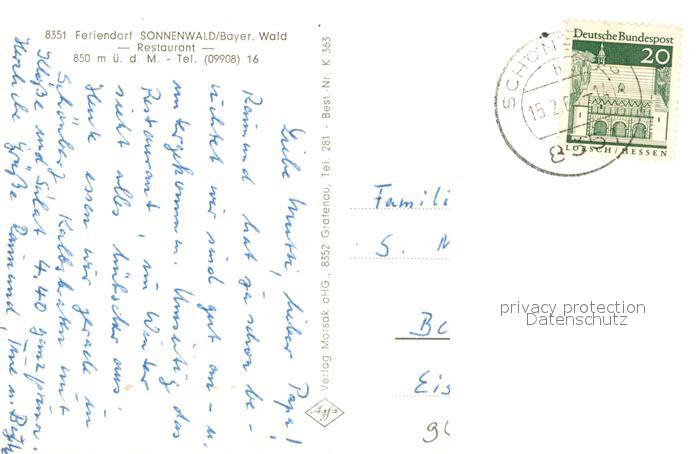 8351 Feriendorf SONNENWALD/Bayer. Wald
— Restaurant —
850 m ü. d. M. - Tel. (09908) 16
Liebe Mutti, lieber Papa!
Raimund hat ja schon be-
richtet wir sind gut an- u.
untergekommen. Umseitig das
Restaurant, im Winter
sieht alles hübscher aus.
Heute essen wir gerade in
Schönberg Kalbsbraten mit
Klöße und Salat 4,40 ganz prima.
Herzliche Grüße Raimund,
Verlag Morsak oHG., 8352 Grafenau, Tel. 281 - Best.-Nr. K 363
Agfa
Famili
S. M
Be
Eis
94
Deutsche Bundespost
20
LORSCH/HESSEN
SCHÖN
15.2.6
835
privacy protection
Datenschutz